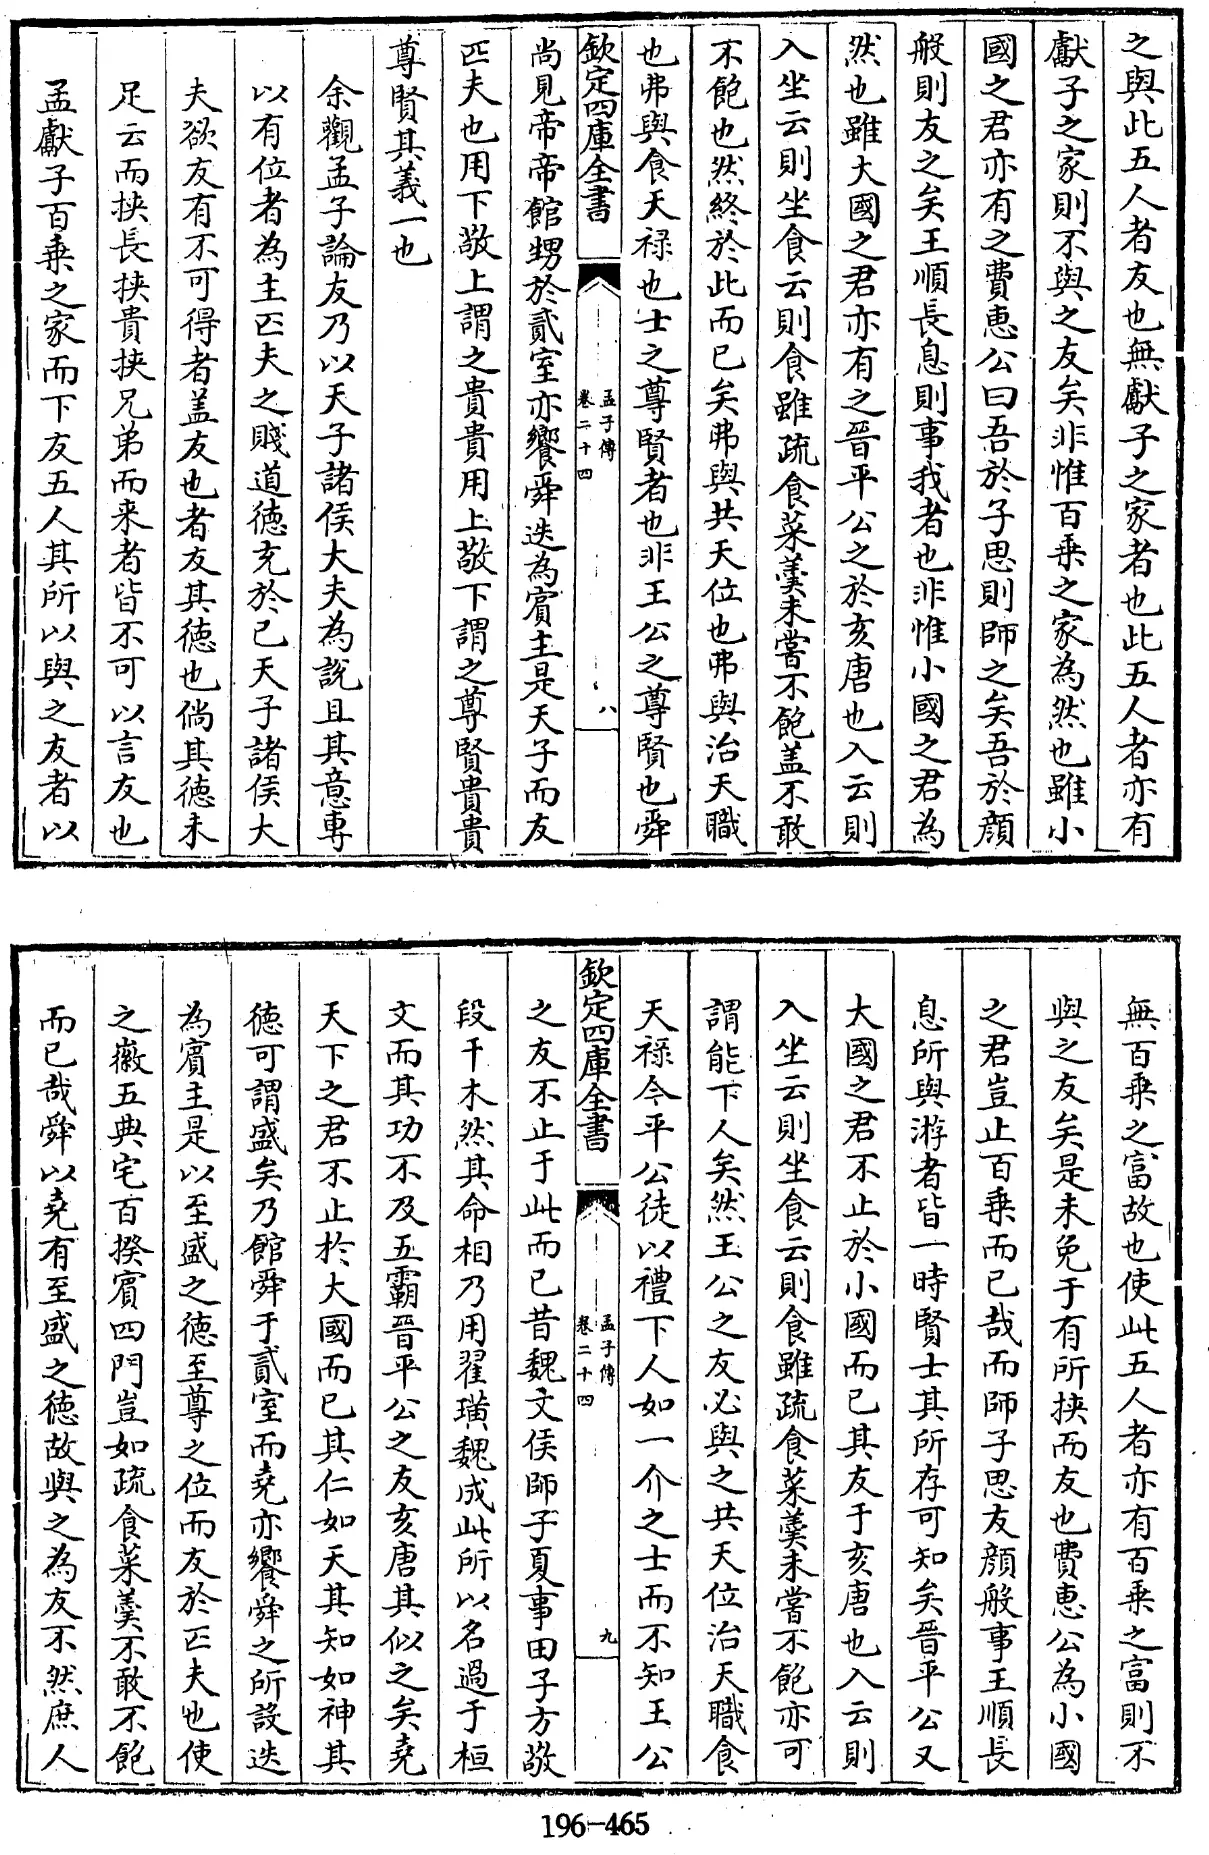 之與此五人者友也無獻子之家者也此五人者亦有
獻子之家則不與之友矣非惟百乗之家為然也雖小
國之君亦有之費惠公曰吾於子思則師之矣吾於顔
般則友之矣王順長息則事我者也非惟小國之君為
然也雖大國之君亦有之晉平公之於亥唐也入云則
入坐云則坐食云則食雖疏食菜羹未嘗不飽盖不敢
不飽也然終於此而已矣弗與共天位也弗與治天職
也弗與食天禄也士之尊賢者也非王公之尊賢也舜
欽定四庫全書
孟子傳
卷二十四
八
尚見帝帝館甥於貳室亦饗舜迭為賓主是天子而友
匹夫也用下敬上謂之貴貴用上敬下謂之尊賢貴貴
尊賢其義一也
余觀孟子論友乃以天子諸侯大夫為説且其意專
以有位者為主匹夫之賤道徳充於已天子諸侯大
夫欲友有不可得者盖友也者友其徳也倘其徳未
足云而挟長挟貴挟兄弟而来者皆不可以言友也
孟獻子百乗之家而下友五人其所以與之友者以
無百乗之富故也使此五人者亦有百乗之富則不
與之友矣是未免于有所挟而友也費惠公為小國
之君豈止百乗而已哉而師子思友顔般事王順長
息所與游者皆一時賢士其所存可知矣晉平公又
大國之君不止於小國而已其友于亥唐也入云則
入坐云則坐食云則食雖疏食菜羹未嘗不飽亦可
謂能下人矣然王公之友必與之共天位治天職食
天禄今平公徒以禮下人如一介之士而不知王公
欽定四庫全書
孟子傳
卷二十四
九
之友不止于此而已昔魏文侯師子夏事田子方敬
段干木然其命相乃用翟璜魏成此所以名過于桓
文而其功不及五霸晉平公之友亥唐其似之矣堯
天下之君不止於大國而已其仁如天其知如神其
徳可謂盛矣乃館舜于貳室而堯亦饗舜之所設迭
為賓主是以至盛之徳至尊之位而友於匹夫也使
之徽五典宅百揆賓四門豈如疏食菜羹不敢不飽
而已哉舜以堯有至盛之徳故與之為友不然庶人
196-465